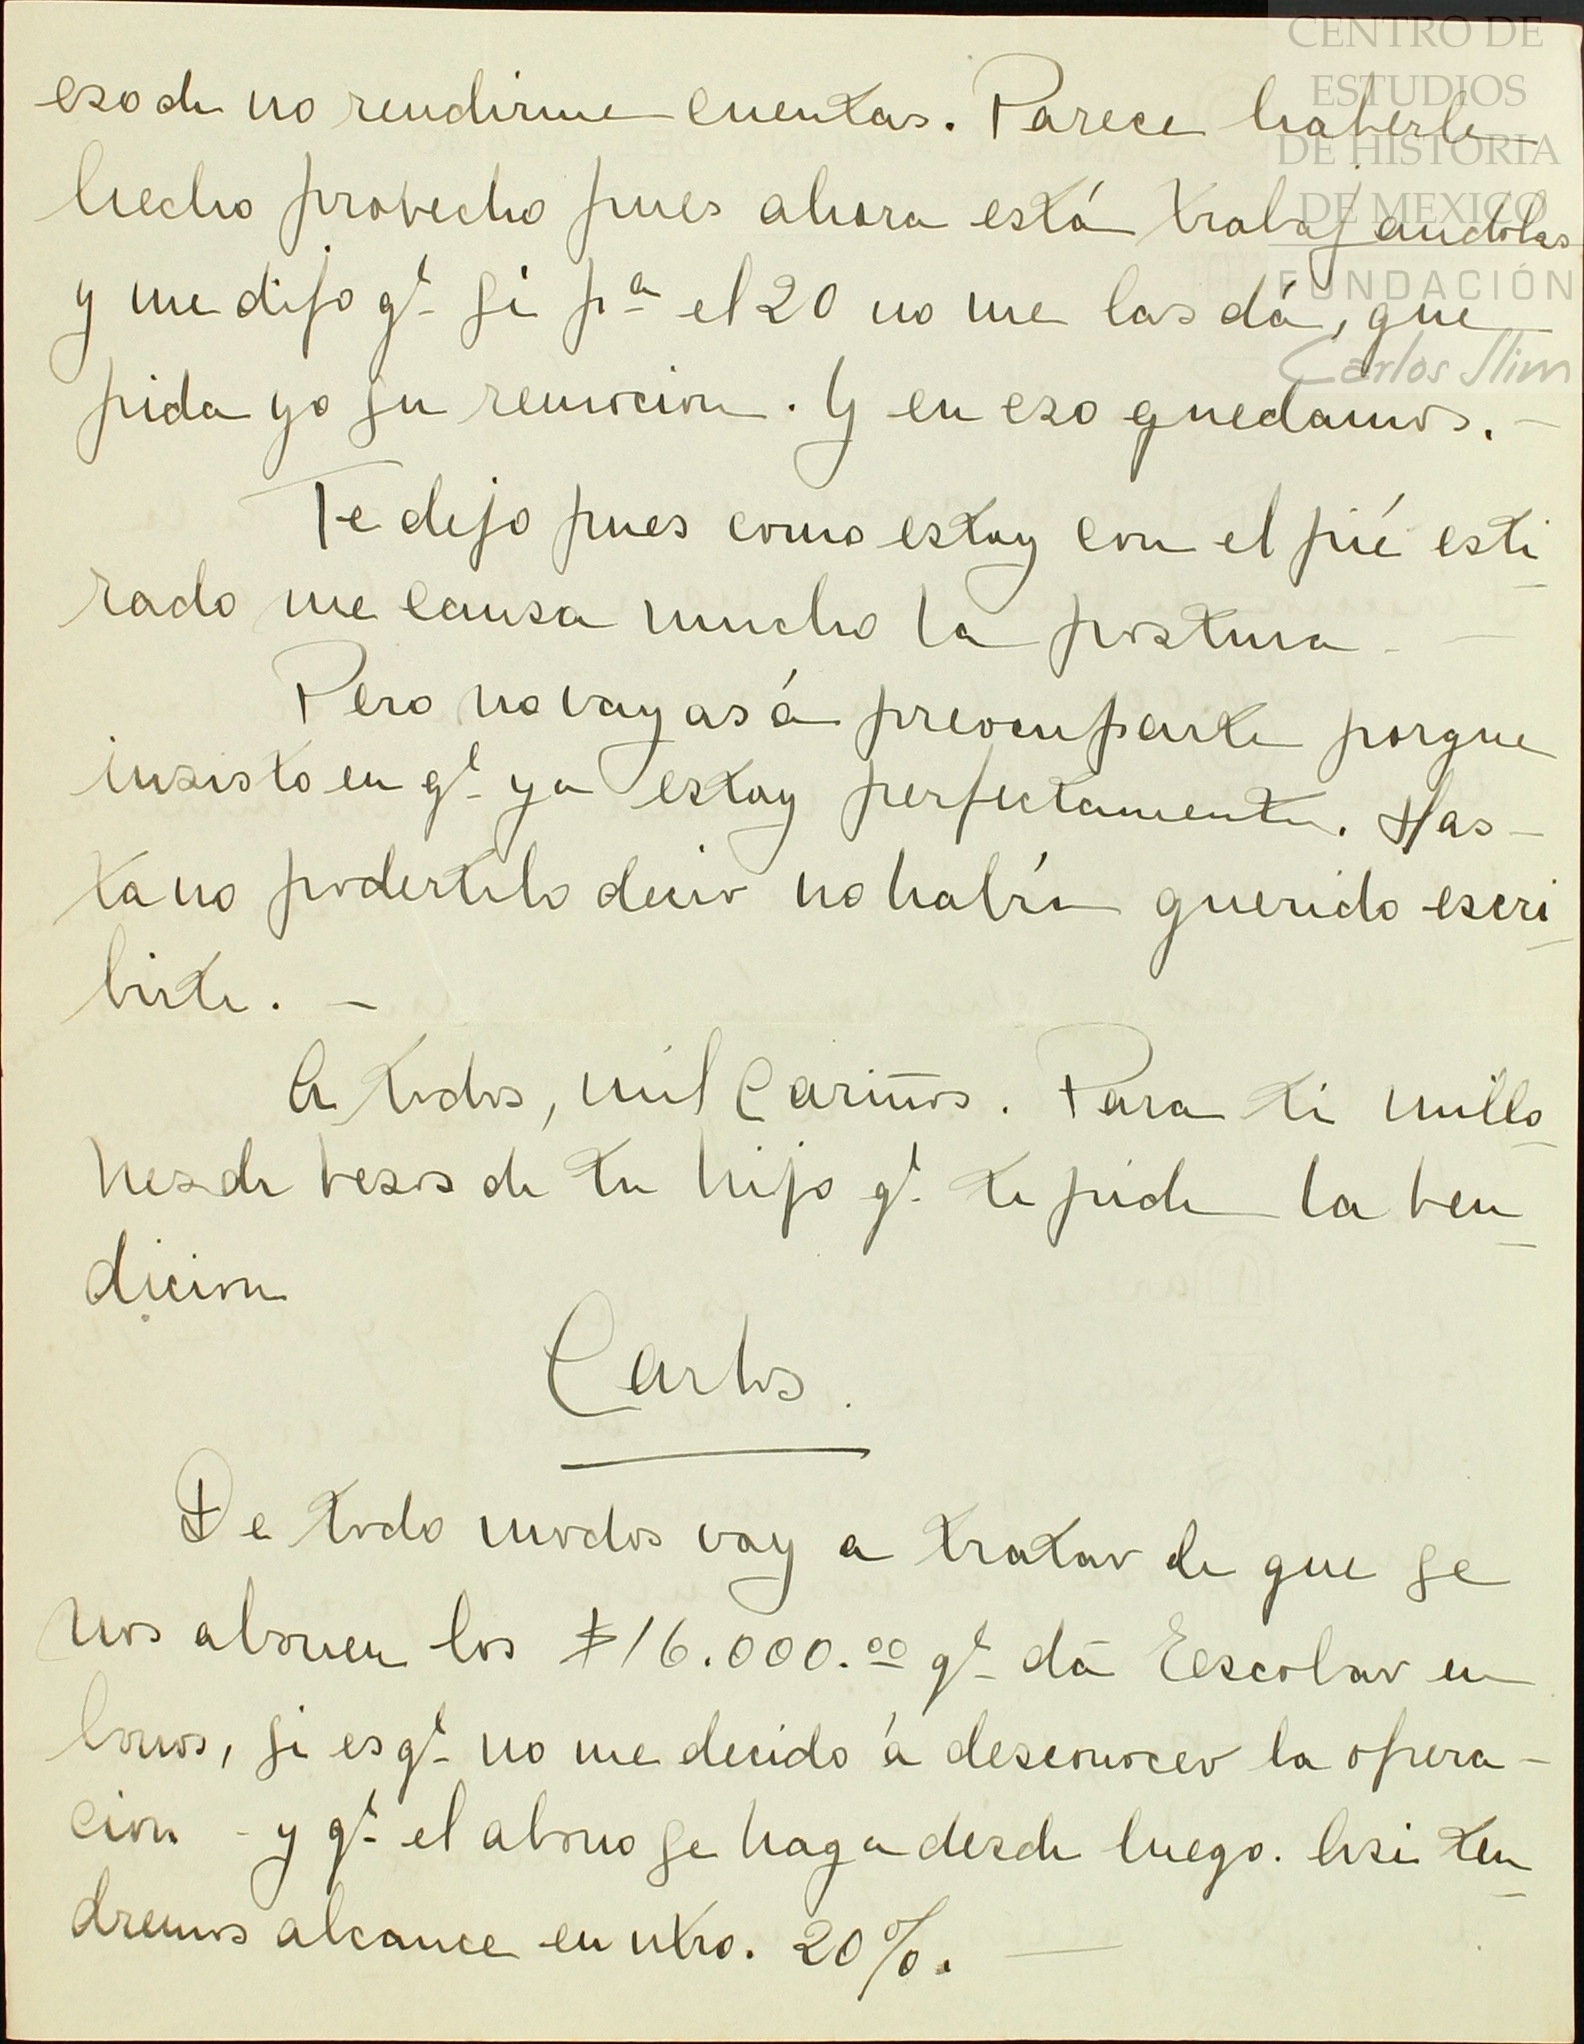 CENTRO DE
ESTUDIOS
DE HISTORIA
DE MEXICO
FUNDACIÓN
Carlos Slim
eso de no rendirme cuentas. Parece haberle
hecho probecho pues ahora está trabajandolas
y me dijo qᵉ si pᵃ el 20 no me las dá, que
pida yo su remocion. Y en eso quedamos. —
Te dejo pues como estoy con el pié esti
rado me cansa mucho la postura —
Pero no vayas á preocuparte porque
insisto en qᵉ ya estoy perfectamente. Has-
ta no podertelo decir no habría querido escri
birte. —
A todos, mil cariños. Para ti millo
nes de besos de tu hijo qᵉ te pide la ben
dicion
Carlos.
De todo modos voy a tratar de que se
nos abonen los $16.000.00 qᵉ dá Eescobar en
bonos, si es qᵉ no me decido á desconocer la opera-
cion - y qᵉ el abono se haga desde luego. Asi ten
dremos alcance en ntro. 20%. —